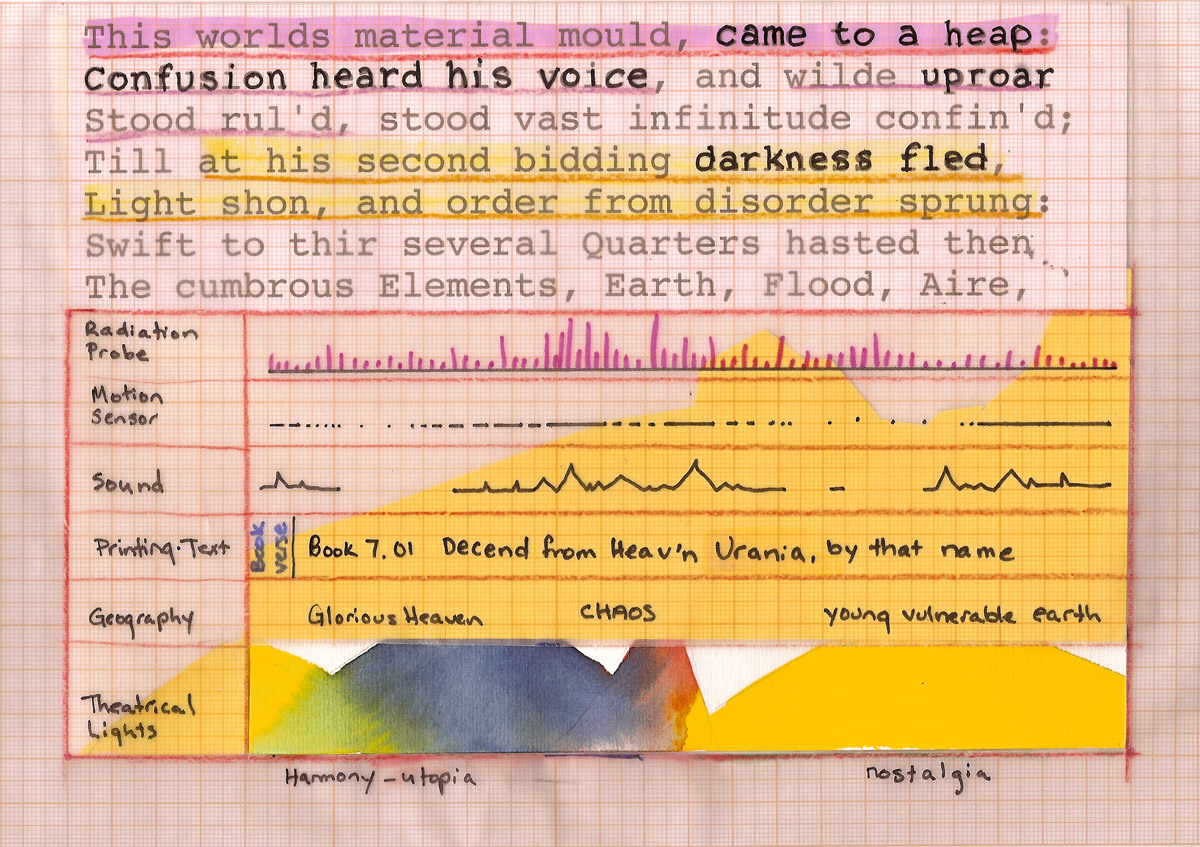 This worlds material mould, came to a heap:
Confusion heard his voice, and wilde uproar
Stood rul'd, stood vast infinitude confin'd;
Till at his second bidding darkness fled,
Light shon, and order from disorder sprung:
Swift to thir several Quarters hasted then
The cumbrous Elements, Earth, Flood, Aire,
Radiation
Probe
Motion
Sensor
Sound
Printing·Text
Book
verse
Book 7.01 Decend from Heav'n Urania, by that name
Geography
Glorious Heaven CHAOS young vulnerable earth
Theatrical
Lights
Harmony - utopia nostalgia